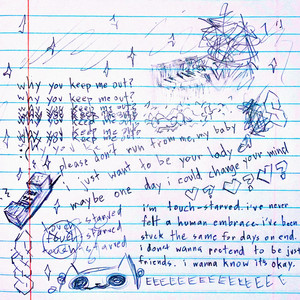 why you keep me out?
why you keep me out?
why you keep me out?
why you keep me out?
why you keep me out?
please don't run from me, my baby
i just want to be your lady
maybe one day i could change your mind
you starved
touch starved
touch starved
i'm touch-starved. i've never
felt a human embrace. i've been
stuck the same for days on end.
i don't wanna pretend to be just
friends. i wanna know its okay.
EEEEEEEEEEEEEE